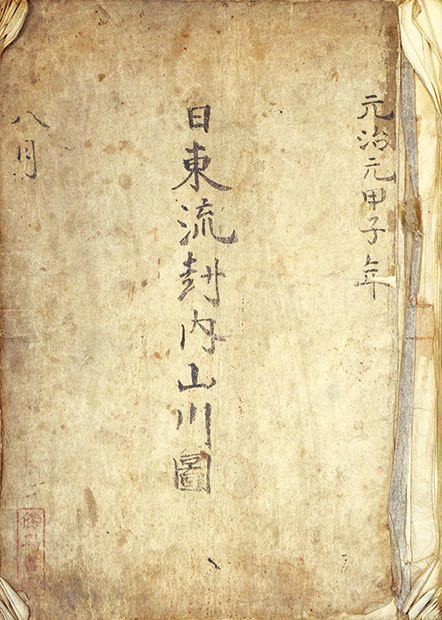 元治元甲子年
日東流封内山川圖
八月